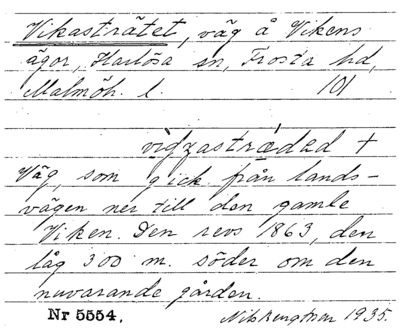 Vikasträtet, väg å Vikens
ägor, Harlösa sn, Frosta hd,
Malmöh. l. 101
viʒastrǽdəd +
Väg, som gick från lands-
vägen ner till den gamle
Viken. Den revs 1863, den
låg 300 m. söder om den
nuvarande gården.
Nr 5554. Nils Bengtson 1935.